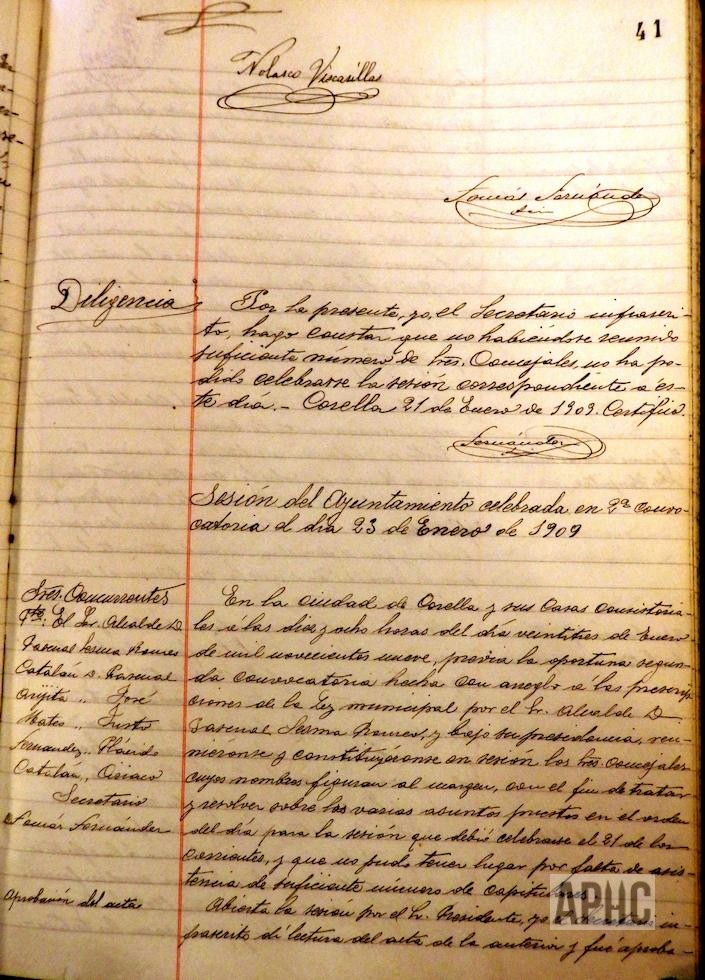 41
Nolasco Viscasillas
Tomás Fernández
Diligencia
Por la presente, yo, el Secretario infrascri-
to, hago constar que no habiéndose reunido
suficiente número de Sres. Concejales, no ha po-
dido celebrarse la sesión correspondiente a es-
te día.- Corella 21 de Enero de 1909. Certifico.
Fernández
Sesión del Ayuntamiento celebrada en 2ª convo-
catoria el día 23 de Enero de 1909
Sres. Concurrentes
Pte. El Sr. Alcalde D.
Pascual Sesma Romeo
Catalán D. Pascual
Arijita " José
Mateo " Justo
Fernández " Plácido
Catalán " Ciriaco
Secretario
D Tomás Fernández
En la ciudad de Corella y sus Casas consistoria-
les á las diez y ocho horas del día veintitres de Enero
de mil novecientos nueve, previa la oportuna segun-
da convocatoria hecha con arreglo á las prescrip-
ciones de la Ley municipal por el Sr. Alcalde D.
Pascual Sesma Romeo, y bajo su presidencia, reu-
nieronse y constituyéronse en sesión los Sres. Concejales
cuyos nombres figuran al margen, con el fin de tratar
y resolver sobre los varios asuntos puestos en el orden
del día para la sesión que debió celebrarse el 21 de los
corrientes, y que no pudo tener lugar por falta de asis-
tencia de suficiente número de Capitulares.
Aprobación del acta
Abierta la sesión por el Sr. Presidente, yo el Secretario in-
frascrito dí lectura del acta de la anterior y fué aproba-
APHC